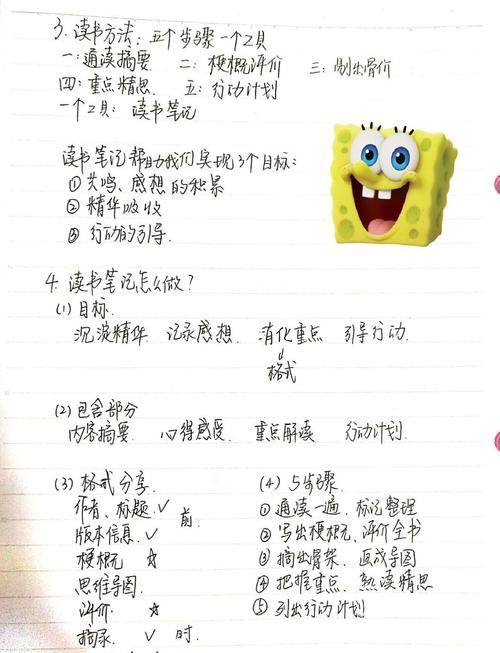 3. 读书方法：五个步骤一个工具
一：通读摘要 二：梗概评价 三：剔出骨价
四：重点精思 五：行动计划
一个工具：读书笔记
读书笔记帮助我们实现3个目标：
①共鸣、感想的积累
②精华吸收
③行动的引导.
4. 读书笔记怎么做？
(1) 目标.
沉淀精华 记录感想. 消化重点 引导行动.
↓
格式
(2) 包含部分
内容摘要. 心得感受. 重点解读 行动计划.
(3) 格式分享.
作者、标题. ✓ 前.
版本信息. ✓
梗概 ☆
思维导图
评价 ☆
摘录. ✓ 时.
(4) 5步骤.
① 通读一遍. 标记整理
② 写出梗概、评价全书
③ 摘出骨架. 画成导图
④ 把握重点. 熟读精思
⑤ 列出行动计划